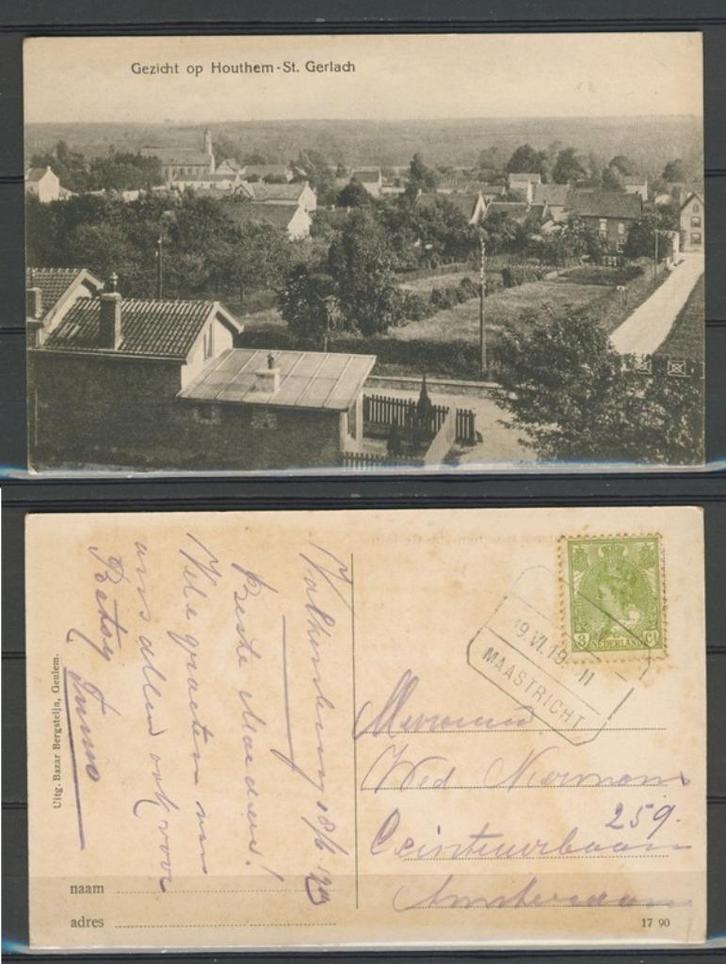 Gezicht op Houthem-St. Gerlach
Valkenburg 18/6 19
Beste Moeder!
Vele groeten van
ons allen ook voor
Betsy
Uitg. Bazar Bergsteijn, Geulem.
naam
adres
3 Ct
NEDERLAND
19.VI.19 11
MAASTRICHT
Mevrouw
Wed
259.
Ceintuurbaan
Amsterdam
17 90